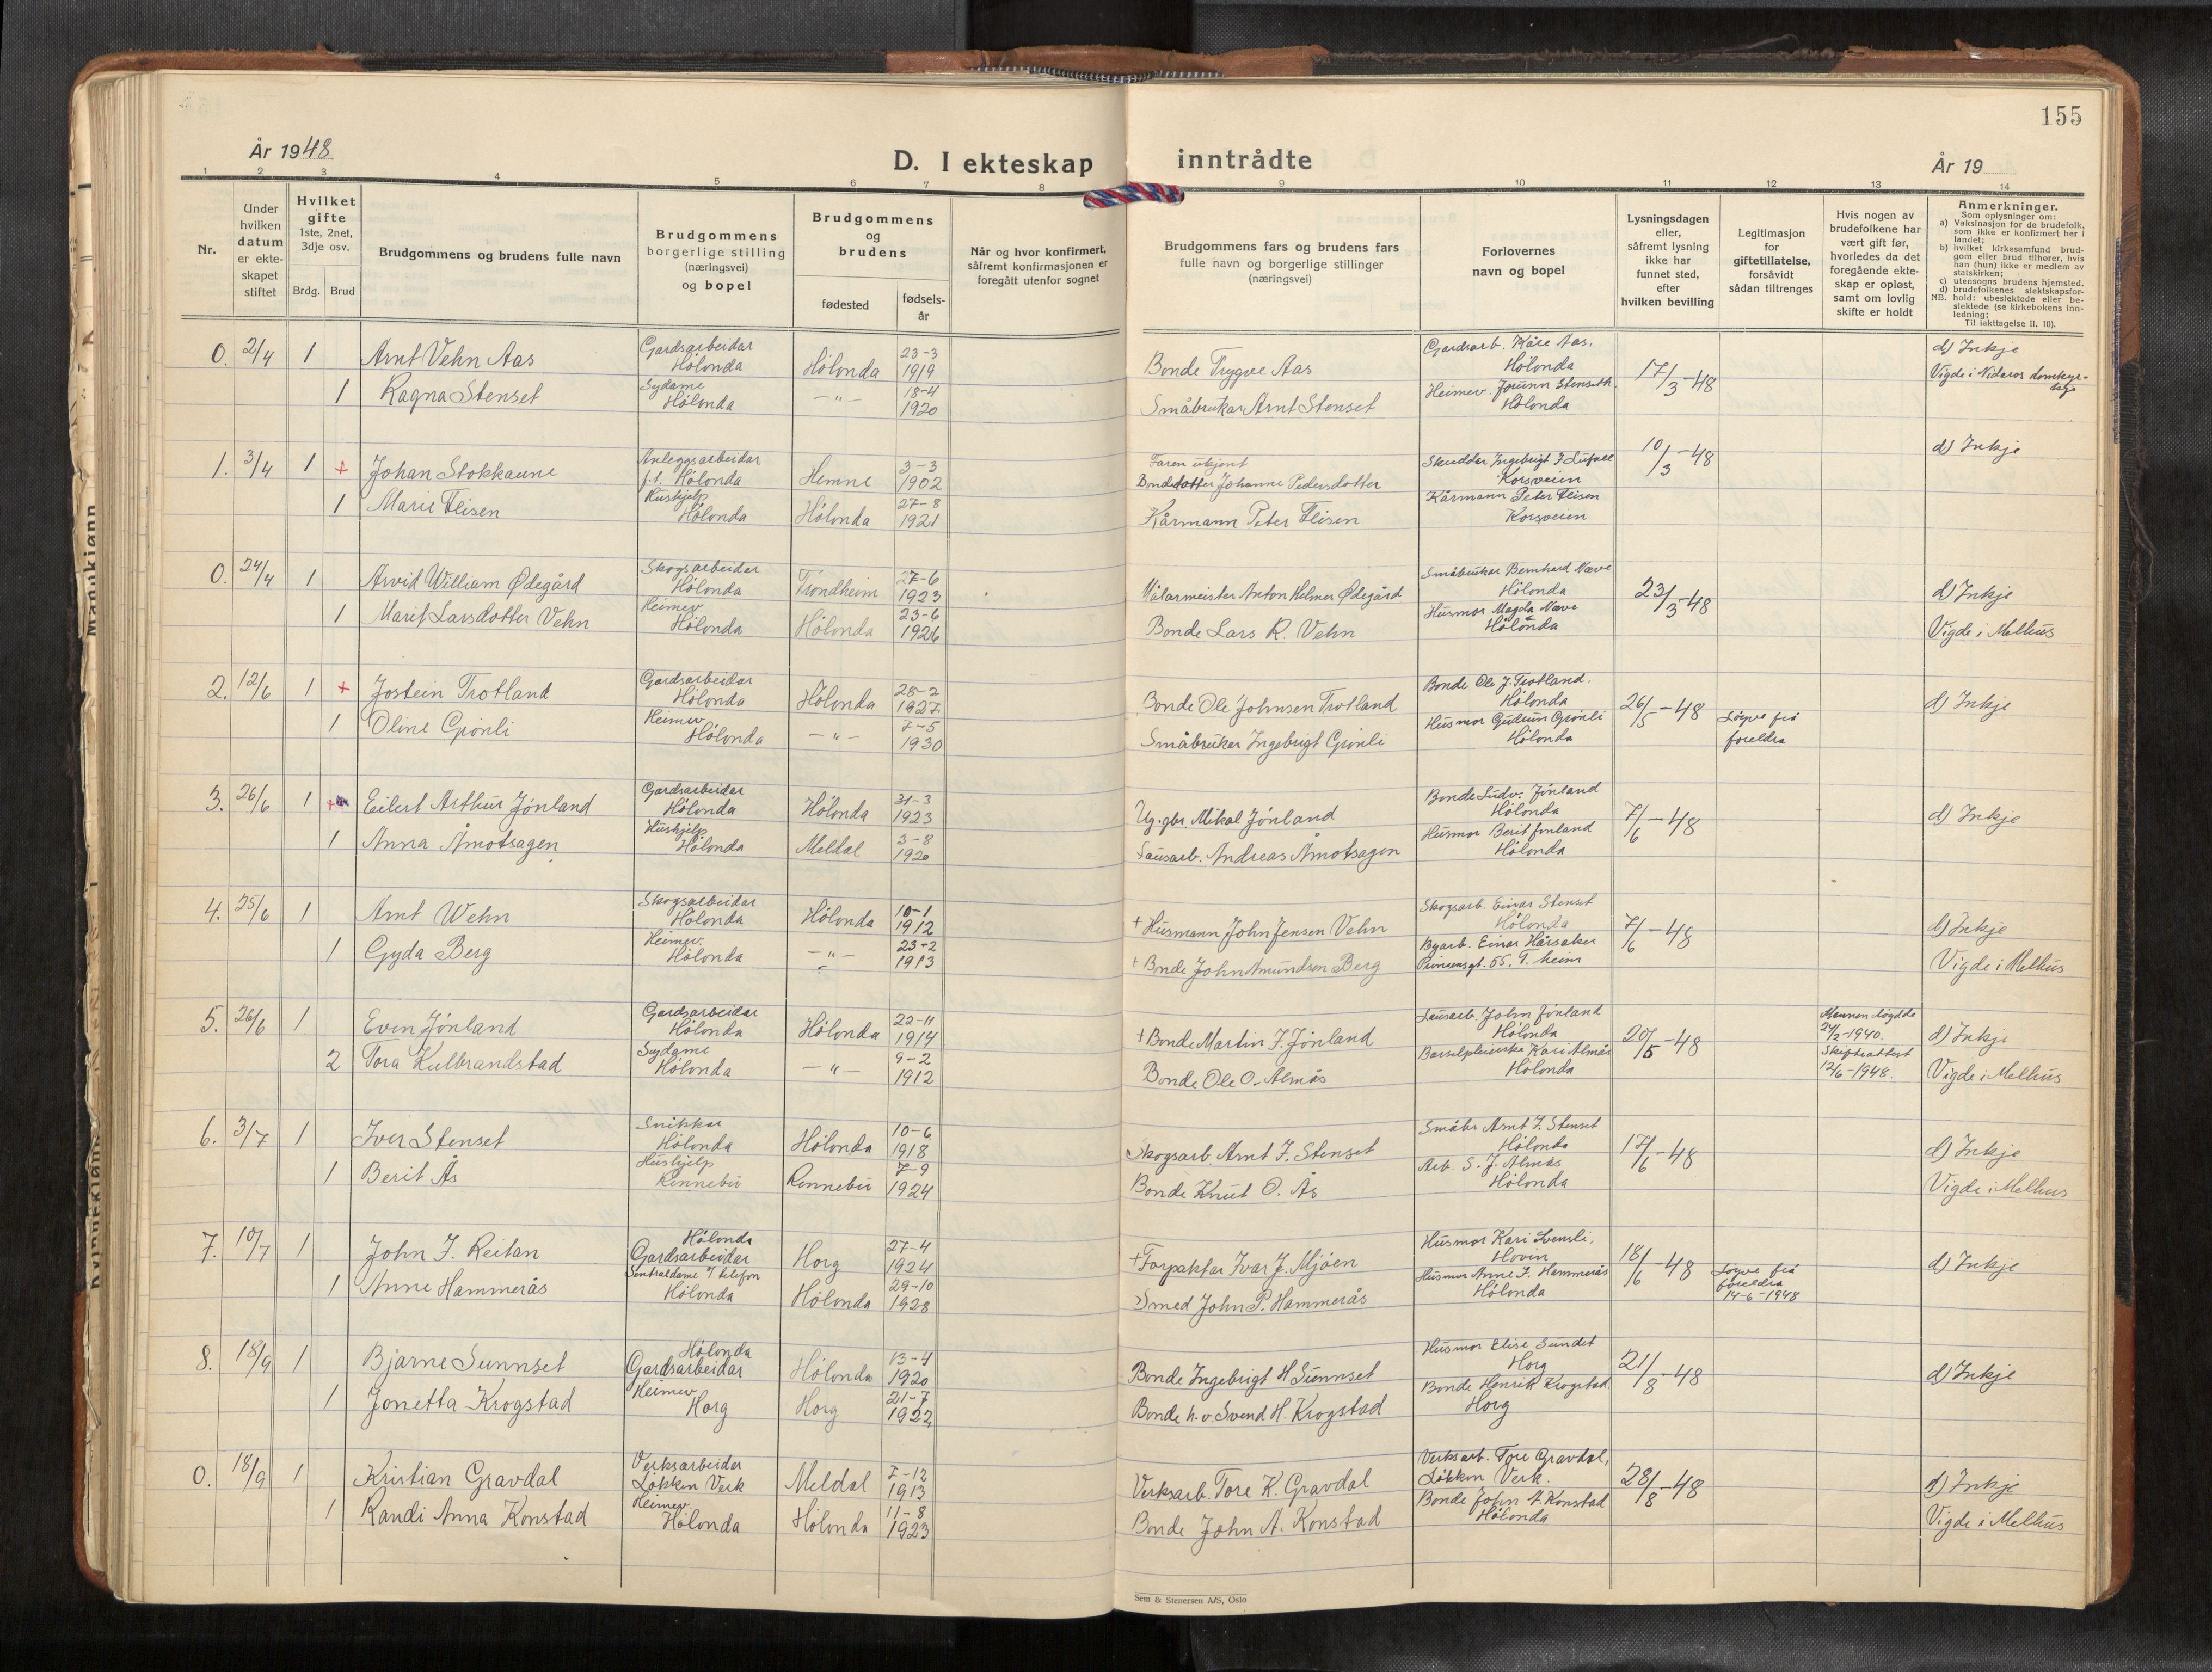 155
År 1948
D. I ekteskap inntrådte
År 19
1 2 3 4 5 6 7 8 9 10 11 12 13 14
Nr.
Under hvilken datum er ekteskapet stiftet
Hvilket gifte 1ste, 2net, 3dje osv.
Brdg. Brud
Brudgommens og brudens fulle navn
Brudgommens borgerlige stilling (næringsvei) og bopel
Brudgommens og brudens
fødested
fødsels-år
Når og hvor konfirmert, såfremt konfirmasjonen er foregått utenfor sognet
Brudgommens fars og brudens fars fulle navn og borgerlige stillinger (næringsvei)
Forlovernes navn og bopel
Lysningsdagen eller, såfremt lysning ikke har funnet sted, efter hvilken bevilling
Legitimasjon for giftetillatelse, forsåvidt sådan tiltrenges
Hvis nogen av brudefolkene har vært gift før, hvorledes da det foregående ekteskap er opløst, samt om lovlig skifte er holdt
Anmerkninger.
Som oplysninger om:
a) Vaksinasjon for de brudefolk, som ikke er konfirmert her i landet;
b) hvilket kirkesamfund brudgom eller brud tilhører, hvis han (hun) ikke er medlem av statskirken;
c) utensogns brudens hjemsted.
d) brudefolkenes slektskapsforhold: ubeslektede eller beslektede (se kirkebokens innledning;
NB. Til iakttagelse II. 10).
0. 2/4 1 Arnt Vehn Aas Gardsarbeidar Hølonda Hølonda 23-3 1919 Bonde Trygve Aas Gardsarb. Kåre Aas, Hølonda 17/3-48 d) Inkje
1 Ragna Stenset Sydame Hølonda -"- 18-4 1920 Småbrukar Arnt Stenset Heimev. Jorunn Stenseth, Hølonda Vigde i Nidaros domkyrkje
1. 3/4 1 + Johan Stokkaune Anleggsarbeidar f.t. Hølonda Hemne 3-3 1902 Faren ukjent Bondedotter Johanne Pedersdotter Korsveien 10/3-48 d) Inkje
1 Marie Flisen Hushjelp Hølonda Hølonda 27-8 1921 Kårmann Peter Flisen Kårmann Peter Flisen Korsveien
0. 24/4 1 Arvid William Ødegård Skogsarbeidar Hølonda Trondheim 27-6 1923 Målarmeister Anton Helmer Ødegård Småbrukar Bernhard Næve Hølonda 23/3-48 d) Inkje
1 Marit Larsdotter Vehn Heimev. Hølonda Hølonda 23-6 1926 Bonde Lars R. Vehn Husmor Magda Næve Hølonda Vigde i Melhus
2. 12/6 1 + Jostein Trotland Gardsarbeidar Hølonda Hølonda 28-2 1927 Bonde Ole Johnsen Trotland Bonde Ole J. Trotland, Hølonda 26/5-48 d) Inkje
1 Oline Grønli Heimev. Hølonda -"- 7-5 1930 Småbrukar Ingebrigt Grønli Husmor Gudrun Grønli Hølonda Løyve frå foreldra
3. 26/6 1 + Eilert Arthur Jønland Gardsarbeidar Hølonda Hølonda 31-3 1923 Ug. gbr. Mikal Jønland Bonde Ludv. Jønland Hølonda 7/6-48 d) Inkje
1 Anna Åmotsagen Hushjelp Hølonda Meldal 3-8 1920 Lausarb. Andreas Åmotsagen Husmor Berit Jønland Hølonda
4. 25/6 1 Arnt Wehn Skogsarbeidar Hølonda Hølonda 10-1 1912 + Husmann John Jensen Vehn Skogsarb. Einar Stenset Hølonda 7/6-48 d) Inkje
1 Gyda Berg Heimev. Hølonda -"- 23-2 1913 + Bnde John Amundsen Berg Byarb. Einar Hårsaker Prinsensgt. 55, T.heim Vigde i Melhus
5. 26/6 1 Even Jønland Gardsarbeidar Hølonda Hølonda 22-11 1914 + Bonde Martin J. Jønland Lausarb. John Jønland Hølonda 20/5-48 Mannen døydde 24/2-1940. d) Inkje
2 Tora Kulbrandstad Sydame Hølonda -"- 9-2 1912 Bonde Ole O. Almås Barselpleierske Kari Almås Hølonda Skifteattest 12/6-1948. Vigde i Melhus
6. 3/7 1 Iver Stenset Snikkar Hølonda Hølonda 10-6 1918 Skogsarb. Arnt J. Stenset Småbr. Arnt J. Stenset Hølonda 17/6-48 d) Inkje
1 Berit Ås Hushjelp Rennebu Rennebu 7-9 1924 Bonde Knut O. Ås Arb. S. J. Almås Hølonda Vigde i Melhus
7. 10/7 1 John J. Reitan Hølonda Gardsarbeidar Horg 27-4 1924 + Forpaktar Ivar J. Mjøen Husmor Kari Svensli, Hovin 18/6-48 d) Inkje
1 Anne Hammerås Sentraldame v/ telefon Hølonda Hølonda 29-10 1928 Smed John P. Hammerås Husmor Anne J. Hammerås Hølonda Løyve frå foreldra 14-6-1948
8. 18/9 1 Bjarne Sunnset Hølonda Gardsarbeidar Hølonda 13-4 1920 Bonde Ingebrigt H Sunnset Husmor Elise Sundet Horg 21/8-48 d) Inkje
1 Jonetta Krogstad Heimev Horg Horg 21-7 1922 Bonde h.v. Svend H. Krogstad Bonde Henrik Krogstad Horg
0. 18/9 1 Kristian Gravdal Verksarbeidar Løkken Verk Meldal 7-12 1913 Verksarb. Tore K. Gravdal Verksarb. Tore Gravdal, Løkken Verk. 28/8-48 d) Inkje
1 Randi Anna Konstad Heimev. Hølonda Hølonda 11-8 1923 Bonde John A. Konstad Bonde John A. Konstad Hølonda Vigde i Melhus
Sem & Stenersen A/S, Oslo